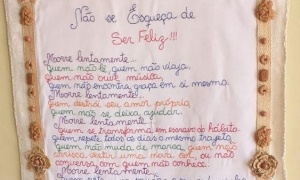 Não se Esqueça de
Ser Feliz!!!
Morre lentamente...
quem não lê, quem não viaja,
quem não ouve música,
quem não encontra graça em si mesma.
Morre lentamente!
quem destrói seu amor próprio
quem não se deixa ajudar.
Morre lentamente...
quem se transforma em escravo do hábito
quem repete todos os dias o mesmo trajeto
quem não muda de marca, quem não
arrisca vestir uma nova cor, ou não
conversa com quem não conhece.
Morre lentamente...